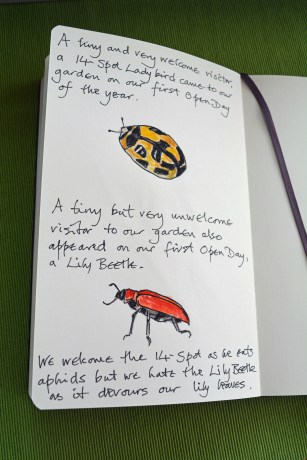 A tiny and very welcome visitor,
a 14-Spot Ladybird came to our
garden on our first Open Day
of the year.
A tiny but very unwelcome
visitor to our garden also
appeared on our first Open Day,
a Lily Beetle.
We welcome the 14-Spot as he eats
aphids but we hate the Lily Beetle
as it devours our lily leaves.